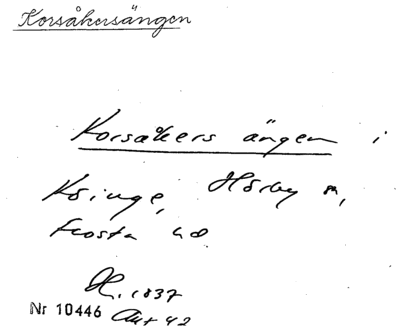 Korsåkersängen
Korsåkers ängen i
Köinge, Hörby sn,
Frosta hd
H. 1837
Nr 10446 Akt 42